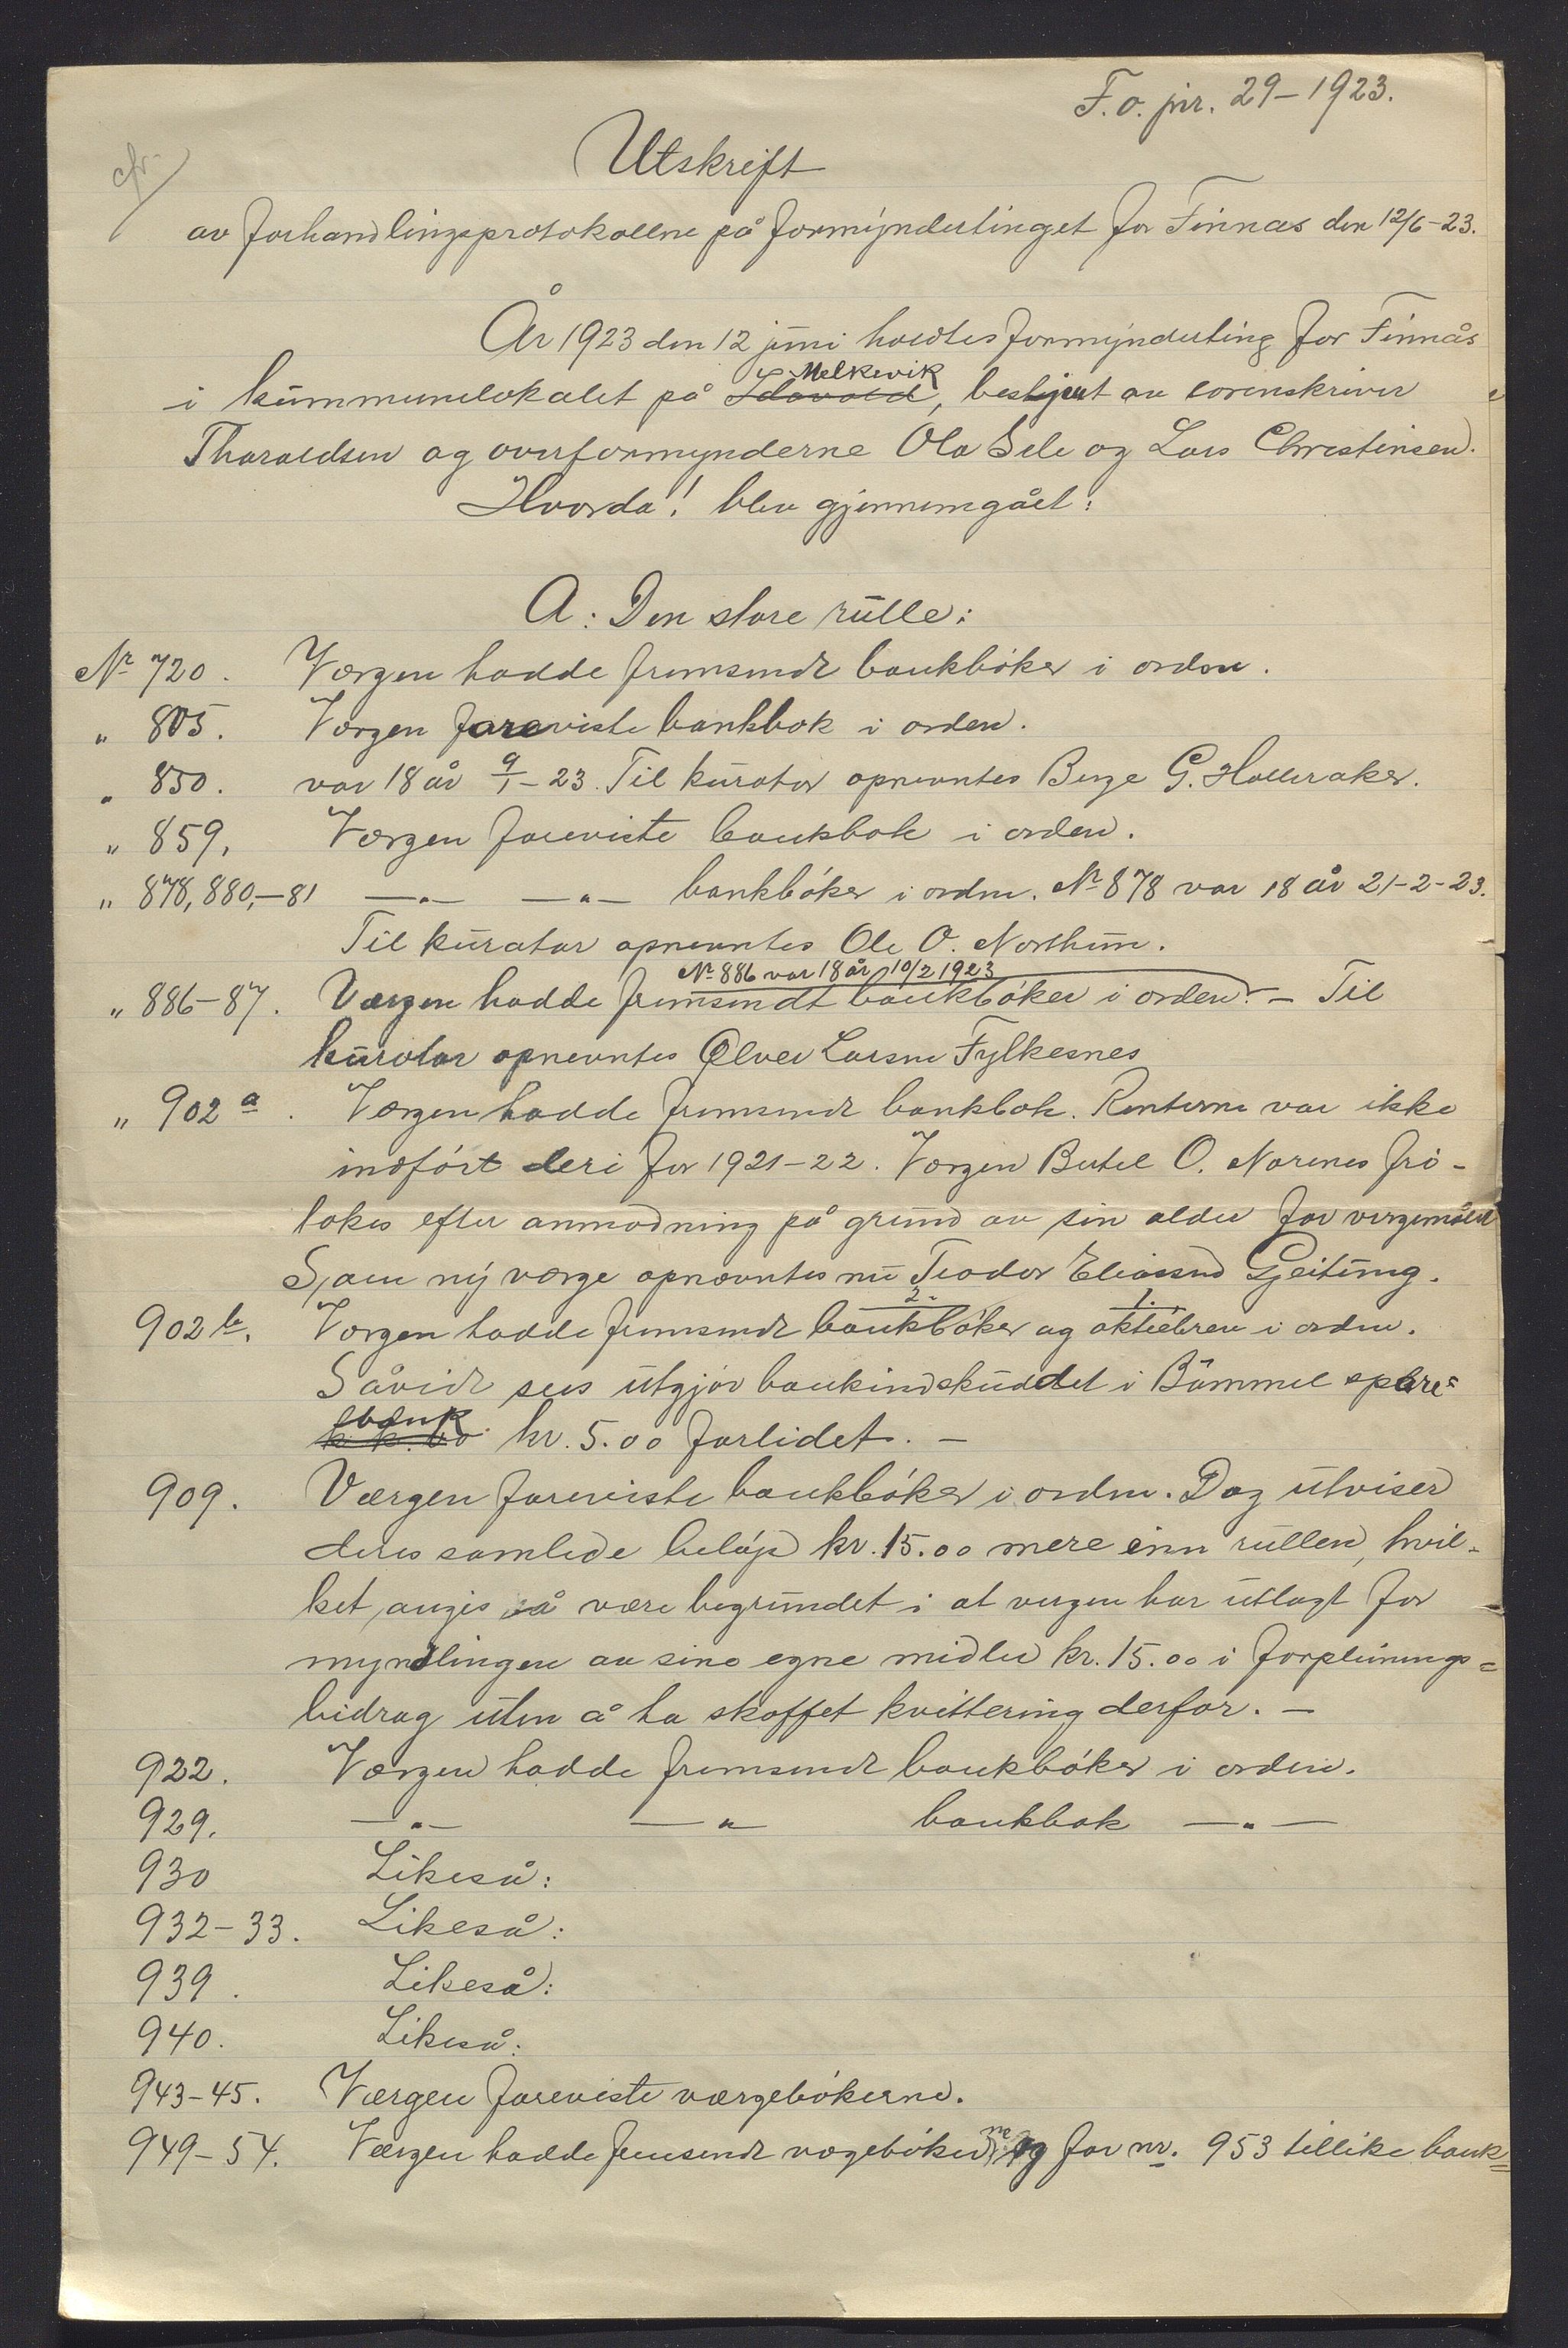 F. o. jnr. 29-1923.
cfr.
Utskrift
av forhandlingsprotokollne på formyndertinget for Finnas den 12/6-23.
År 1923 den 12 juni holdtes formynderting for Finnås
Melkevik
i kummunelokalet på, bestyret av sorenskriver
Tharaldsen og overformynderne Ola Sele og Lars Christensen.
Hvorda! blev gjennemgået:
A: Den store rulle:
Nr 720. Værgen hadde fremsendt bankbøker i orden.
" 805. Værgen foreviste bankbok i orden.
" 850. var 18 år 9/1-23. Til kurator opnevntes Berge G. Holleraker.
" 859, Værgen foreviste bankbok i orden.
" 878, 880,-81 —"— —"— bankbøker i orden. Nr 878 var 18 år 21-2-23.
Til kurator opnevntes Ole O. Northun.
Nr 886 var 18 år 10/2 1923
" 886-87. Værgen hadde fremsendt bankbøker i orden. - Til
kurator opnevntes Ølver Larsen Fylkesnes
" 902 a. Værgen hadde fremsendt bankbok. Renterne var ikke
indført deri for 1921-22. Værgen Bertel O. Norenes fri-
tokes efter anmodning på grund av sin alder for vergemålet
Som ny værge opnævntes nu Teodor Eliassen Gjeitung.
2. 1.
902 b. Værgen hadde fremsendt bankbøker og aktiebrev i orden.
Såvidt sees utgjør bankindskuddet i Bømmel spare=
bank kr. 5.00 forlidet. -
909. Værgen foreviste bankbøker i orden. Dog utviser
deres samlede beløp kr. 15.00 mere enn rullen, hvil-
ket angis å være begrundet i at vergen har utlagt for
myndlingen av sine egne midler kr. 15.00 i forpleinings=
bidrag uten å ha skaffet kvittering derfor. -
922. Værgen hadde fremsendt bankbøker i orden.
929. —"— —"— bankbok —"—
930 Likeså:
932-33. Likeså:
939. Likeså:
940. Likeså:
943-45. Værgen foreviste værgebøkerne.
949-54. Værgen hadde fremsendt vægebøkerne og for nr. 953 tillike bank=